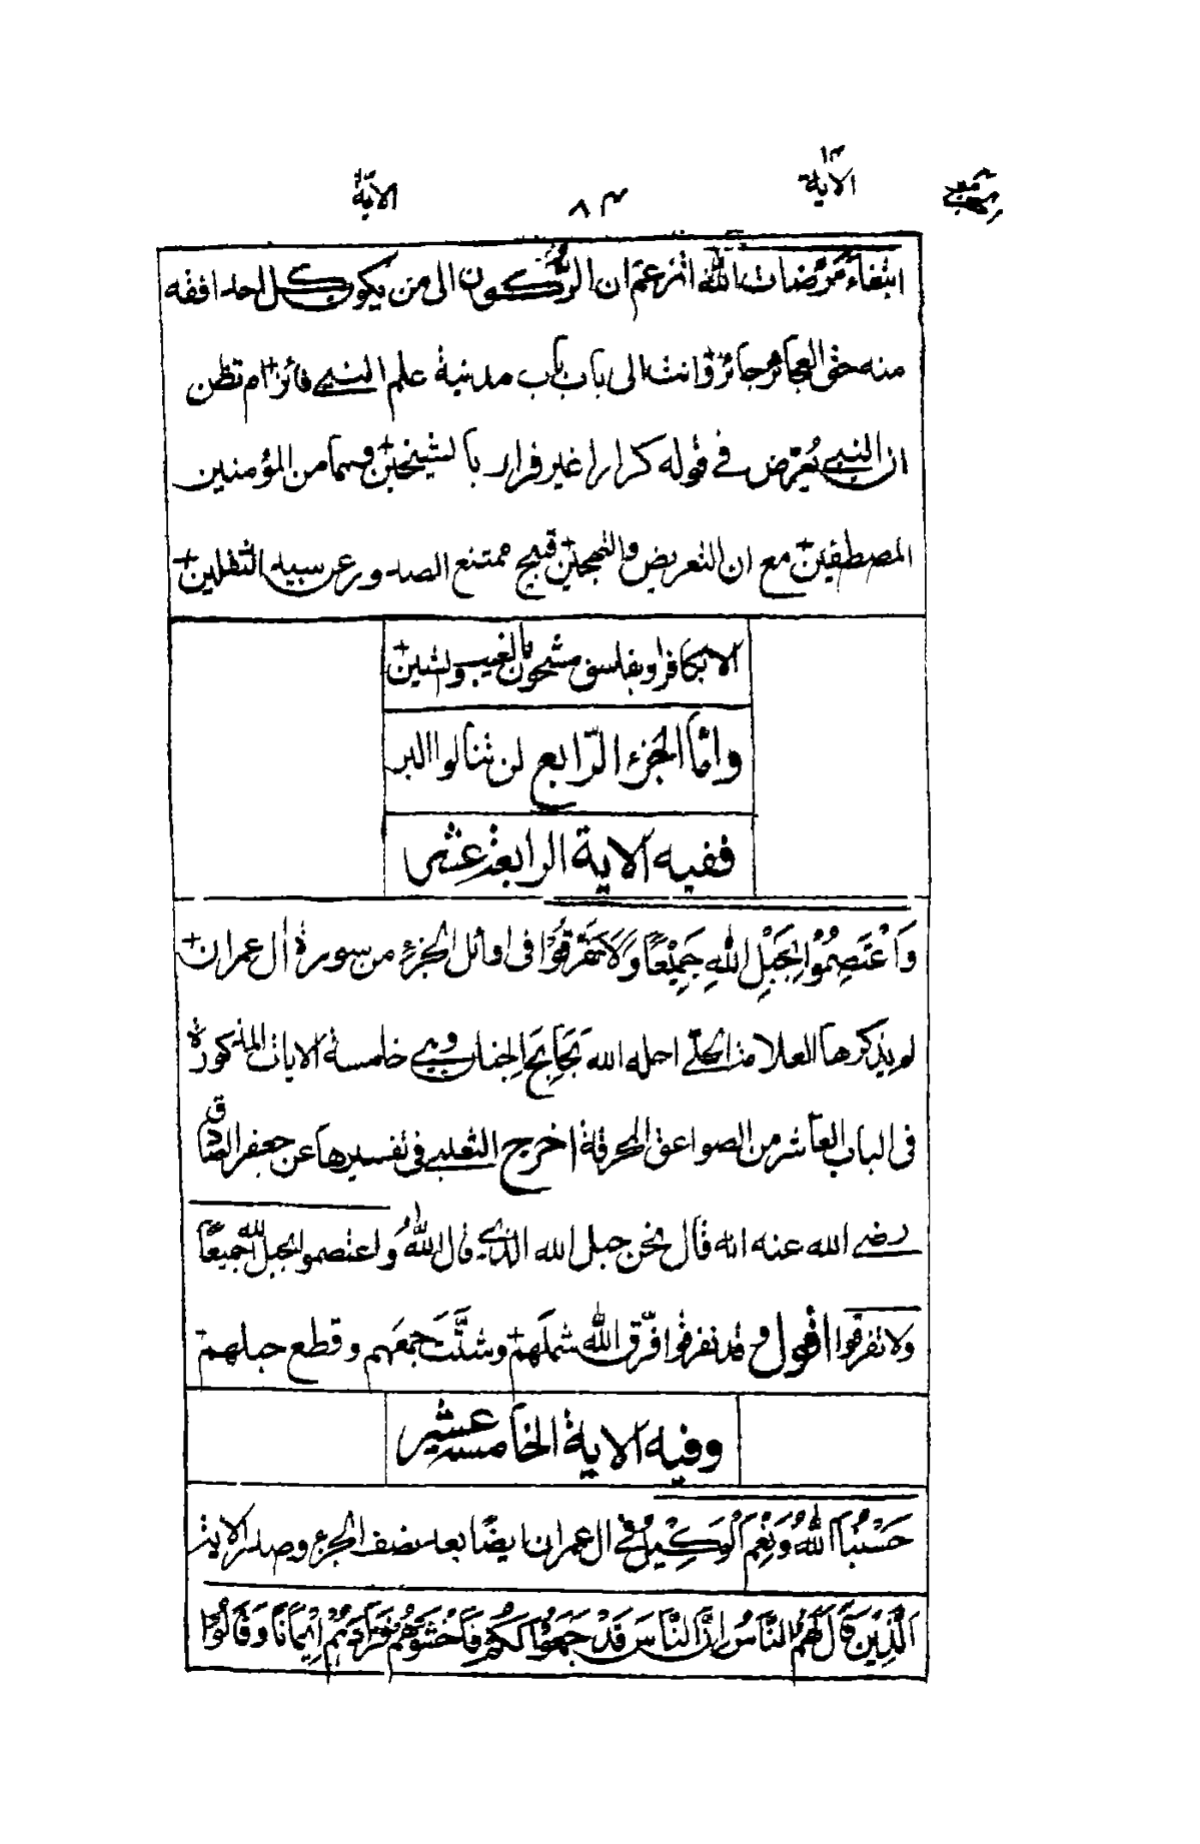 الآية ١٤
٨٣
الآية
ابتغاء مرضات الله اتزعم ان الركون الى من يكون كل احد افقه
منه حتى العجائز جائز وانت الى باب باب مدينة علم النبي فائز ام تظن
ان النبي يعرّض في قوله كرارا غير فرار بالشيخين وهما من المؤمنين
المصطفين مع ان التعريض والتهجين قبيح ممتنع الصدور عن سيد الثقلين
الا بكافر او بفاسق مشحون بالغيب والشين
وامّا الجزء الرّابع لن تنالوا البر
ففيه الاية الرابعة عشر
وَاعْتَصِمُوْا بِحَبْلِ اللهِ جَمِيْعًا وَلَا تَفَرَّقُوْا فى اوائل الجزء من سورة ال عمران
لم يذكرها العلامة الحلّي احله الله بَحَابِحَ الجنان وهي خامسة الايات المذكورة
فى الباب العاشر من الصواعق المحرقة اخرج الثعلبي فى تفسيرها عن جعفر الصادق
رضي الله عنه انه قال نحن حبل الله الذي قال اللهُ واعتصموا بحبل الله جميعًا
ولا تفرقوا اقول وقد تفرقوا فرّق الله شملَهم وشتَّتَ جمعَهم وقطع حبلهم
وفيه الاية الخامسة عشر
حَسْبُنَا اللهُ وَنِعْمَ الْوَكِيْلُ في ال عمران ايضًا بعد نصف الجزء وصدر الاية
اَلَّذِيْنَ قَالَ لَهُمُ النَّاسُ اِنَّ النَّاسَ قَدْ جَمَعُوْا لَكُمْ فَاخْشَوْهُمْ فَزَادَهُمْ اِيْمَانًا وَقَالُوْا